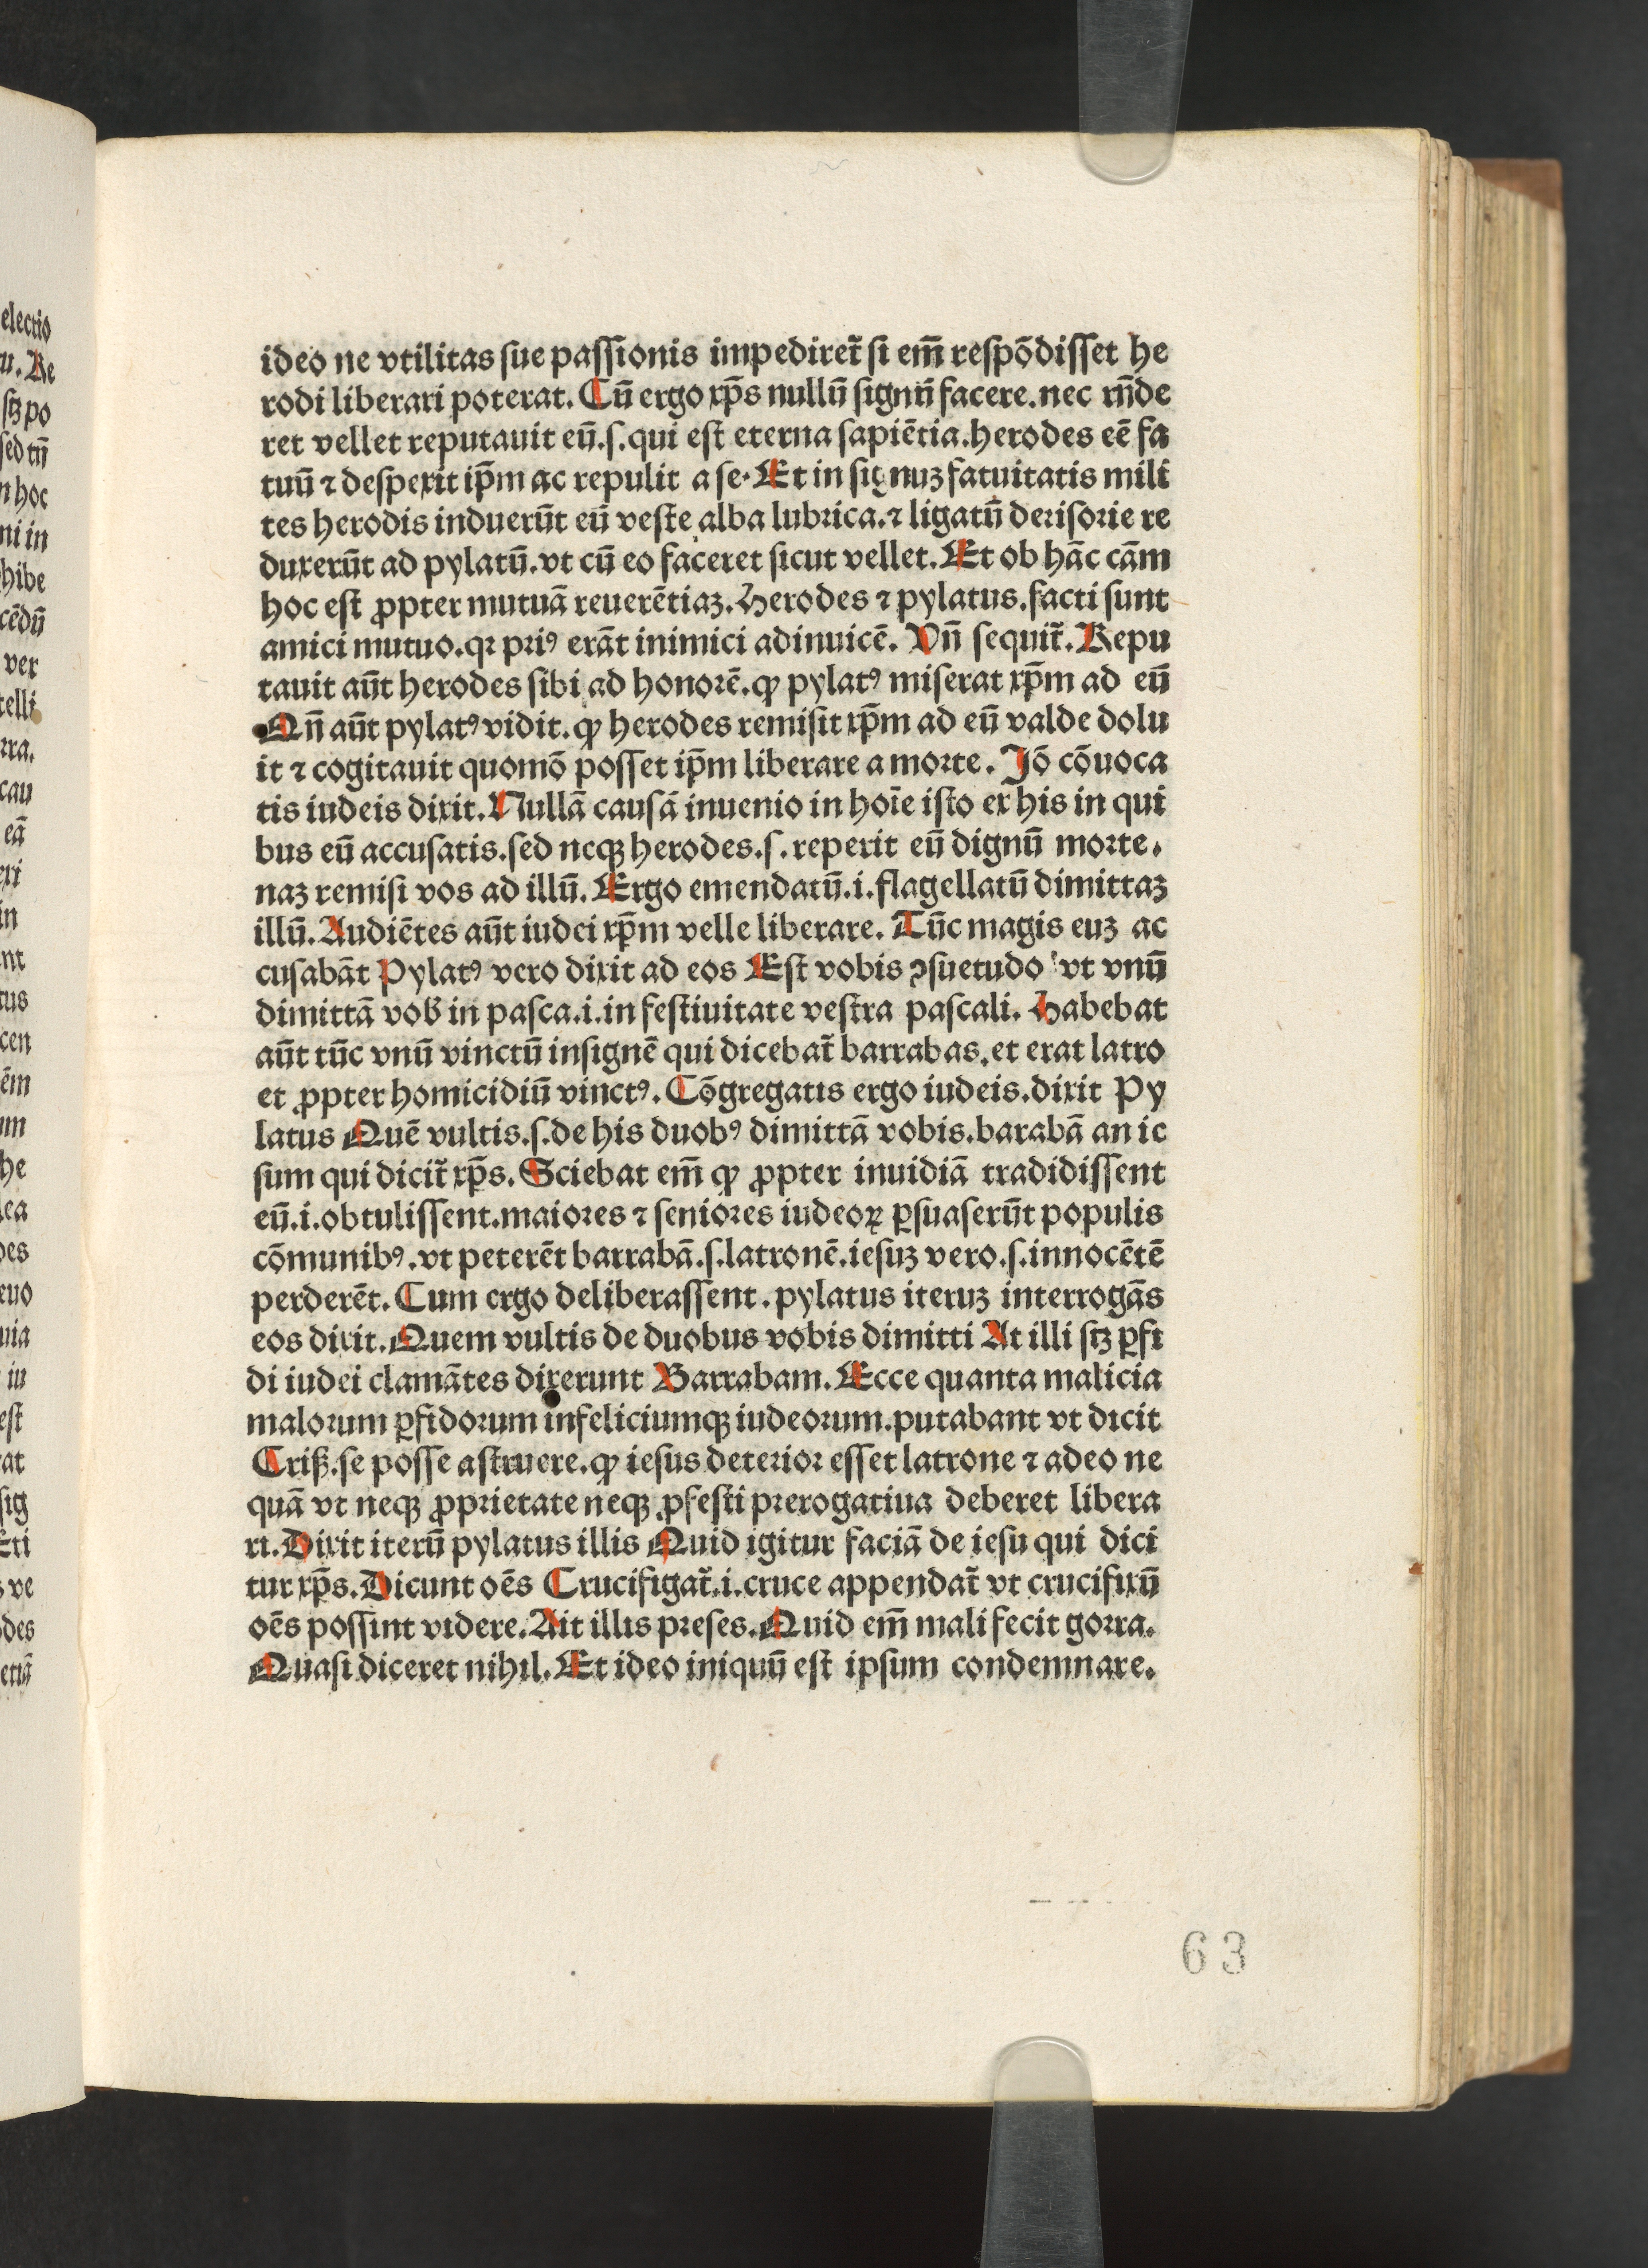 ideo ne vtilitas sue passionis impediret̃ si em̃ respõdisset he
rodi liberari poterat. Cũ ergo xp̃s nullũ signũ facere. nec rñde
ret vellet reputauit eũ. s. qui est eterna sapiẽtia. herodes eẽ fa
tuũ ⁊ despexit ip̃m ac repulit a se. Et in signuz fatuitatis mili
tes herodis induerũt eũ veste alba lubrica. ⁊ ligatũ derisorie re
duxerũt ad pylatũ. vt cũ eo faceret sicut vellet. Et ob hãc cãm
hoc est ꝓpter mutuã reuerẽtiaz. Herodes ⁊ pylatus. facti sunt
amici mutuo. qꝛ priꝰ erãt inimici adinuicẽ. Vñ sequit̃. Repu
tauit aũt herodes sibi ad honorẽ. ꝙ pylatꝰ miserat xp̃m ad eũ
Qñ aũt pylatꝰ vidit. ꝙ herodes remisit xp̃m ad eũ valde dolu
it ⁊ cogitauit quomõ posset ip̃m liberare a morte. Jõ cõuoca
tis iudeis dixit. Nullã causã inuenio in hoĩe isto ex his in qui
bus eũ accusatis. sed neqꝫ herodes. s. reperit eũ dignũ morte.
naz remisi vos ad illũ. Ergo emendatũ. i. flagellatũ dimittaz
illũ. Audiẽtes aũt iudei xp̃m velle liberare. Tũc magis euz ac
cusabãt Pylatꝰ vero dixit ad eos Est vobis ꝯsuetudo vt vnũ
dimittã vob̃ in pasca. i. in festiuitate vestra pascali. Habebat
aũt tũc vnũ vinctũ insignẽ qui dicebat̃ barrabas. et erat latro
et ꝓpter homicidiũ vinctꝰ. Cõgregatis ergo iudeis. dixit Py
latus Quẽ vultis. s. de his duobꝰ dimittã vobis. barabã an ie
sum qui dicit̃ xp̃s. Sciebat em̃ ꝙ ꝓpter inuidiã tradidissent
eũ. i. obtulissent. maiores ⁊ seniores iudeoꝝ ꝑsuaserũt populis
cõmunibꝰ. vt peterẽt barrabã. s. latronẽ. iesuz vero. s. innocẽtẽ
perderẽt. Cum ergo deliberassent. pylatus iteruz interrogãs
eos dixit. Quem vultis de duobus vobis dimitti At illi sꝫ ꝑfi
di iudei clamãtes dixerunt Barrabam. Ecce quanta malicia
malorum ꝑfidorum infeliciumqꝫ iudeorum. putabant vt dicit
Criß. se posse astruere. ꝙ iesus deterior esset latrone ⁊ adeo ne
quã vt neqꝫ ꝓprietate neqꝫ ꝓ festi prerogatiua deberet libera
ri. Dixit iterũ pylatus illis Quid igitur faciã de iesu qui dici
tur xp̃s. Dicunt oẽs Crucifigat̃. i. cruce appendat̃ vt crucifixũ
oẽs possint videre. Ait illis preses. Quid em̃ mali fecit gorra.
Quasi diceret nihil. Et ideo iniquũ est ipsum condemnare.
63